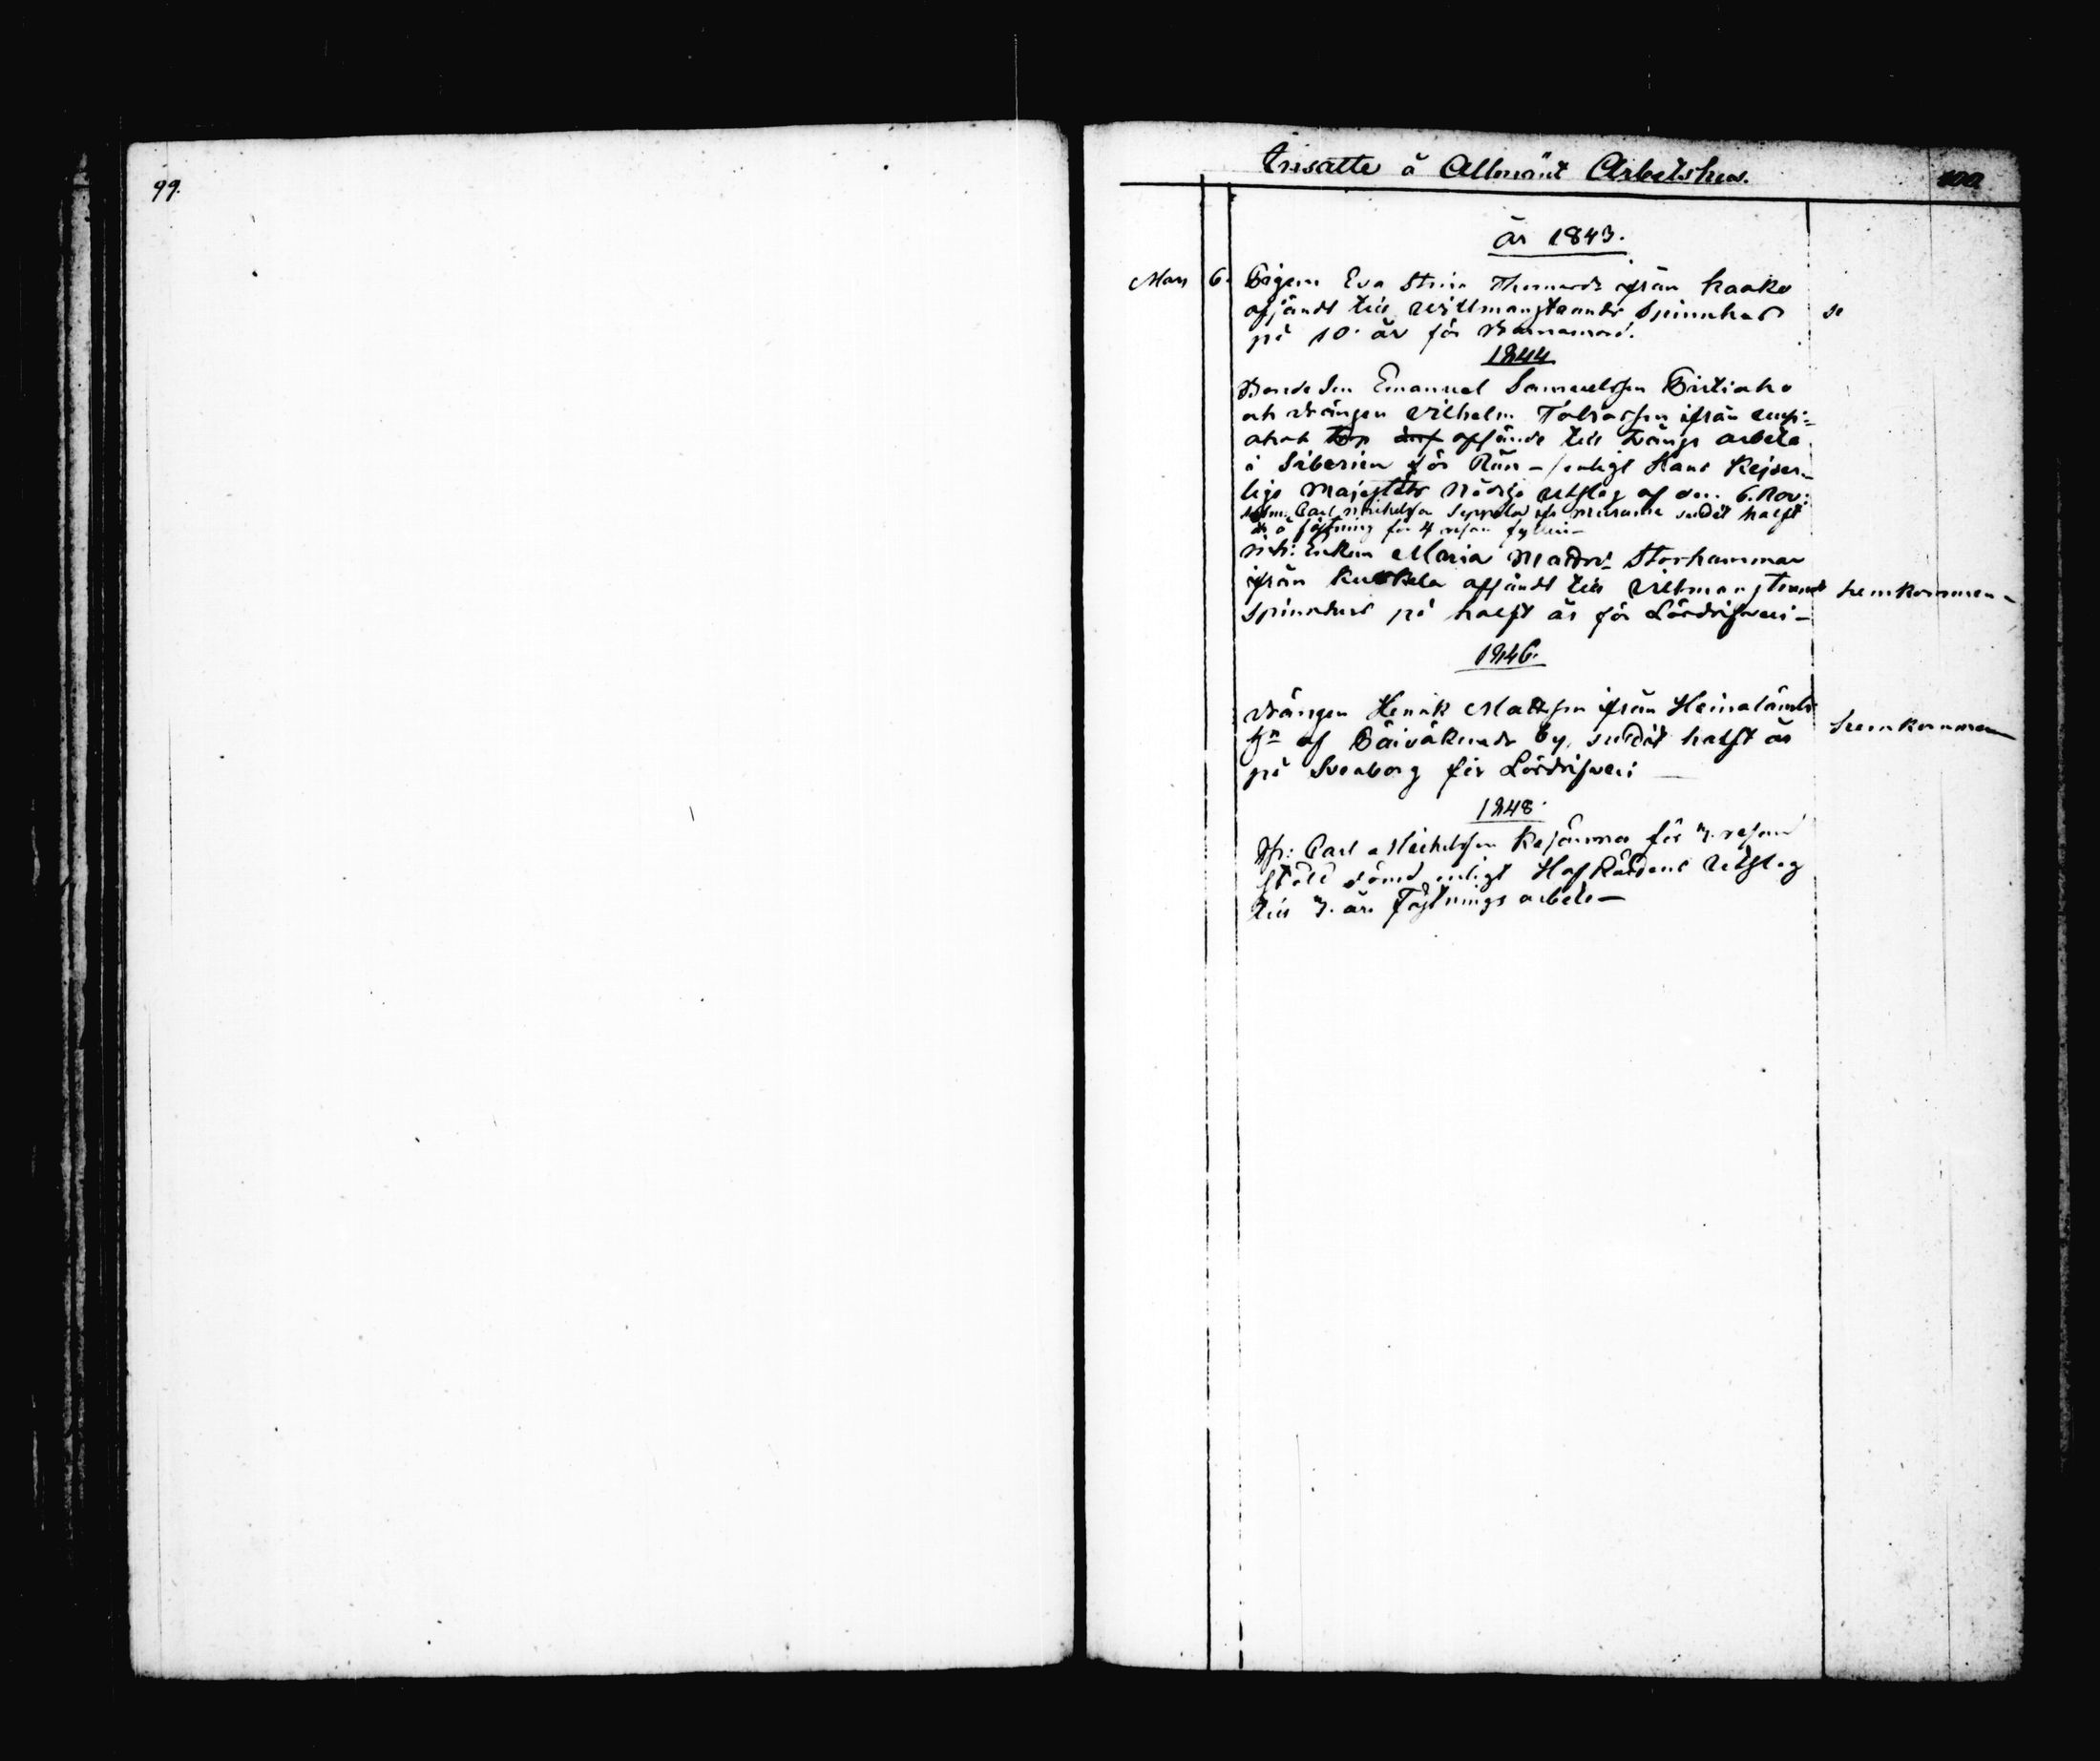 99.
Insatte å Allmänt Arbetshus.
100
År 1843.
Mars 6. Pigan Eva Stina Thomasdr ifrån Haako
afsändt till Willmanstrands Spinnhus
på 10 år för Barnamord.
1844
Bonde Son Emanuel Samuelsson
och Drängen Vilhelm Tobiasson ifrån
afsände till tvångs arbete
i Siberien för Rån - enligt Hans Kejser-
liga Majestäts Nådiga Utslag af den 6. Nov:
Carl Michelsson Seppälä suttit halft
år å fästning för 4 resan fylleri -
Enkan Maria Mattsdr Storhammar
ifrån Kuskela afsändt till Vilmanstrands
Spinnhus på halft år för Lösdrifveri -
hemkommen -
1846.
Drängen Henrik Mattsson ifrån Heinalamb
af Päiväkunda by, suttit halft år
på Sveaborg för Lösdrifveri
hemkommen
1848.
Carl Michelsson Kasänmaa för 3. resan
stöld dömd enligt Hof Rättens Utslag
till 3. års Fästnings arbete -